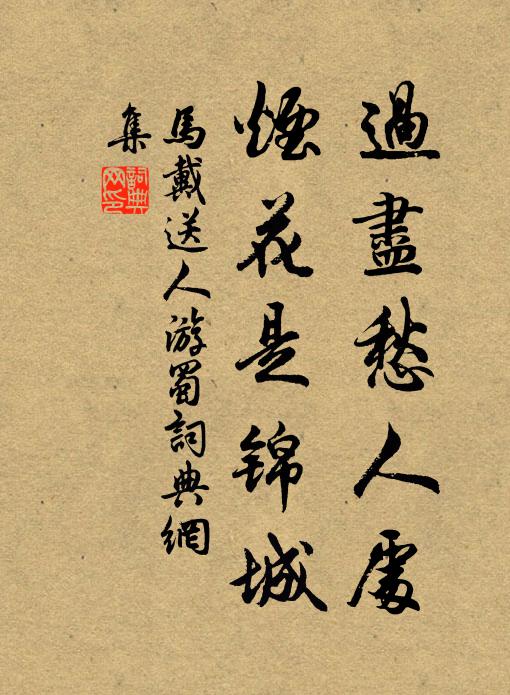 過盡愁人處
煙花是錦城
馬戴送人游蜀詞典網
集
詞典
网印